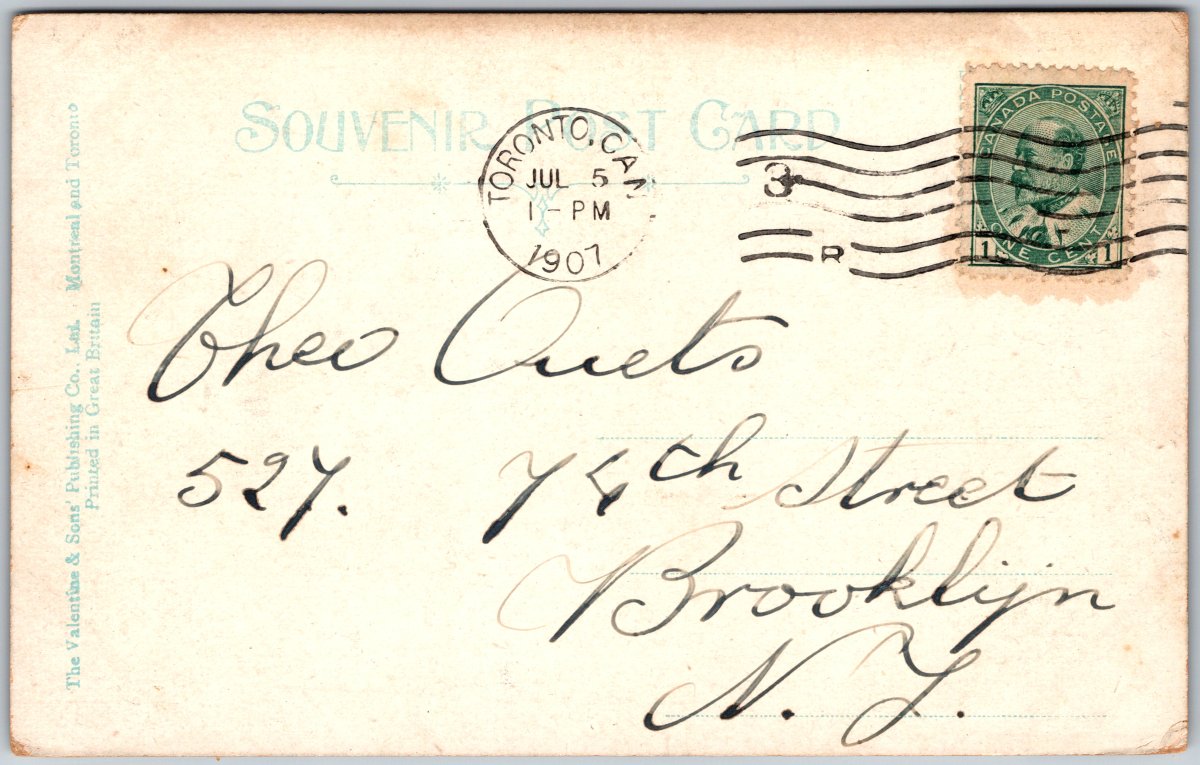 SOUVENIR POST CARD
TORONTO, CAN
JUL 5
1 - PM
1907
3
R
CANADA POSTAGE
1 ONE CENT 1
Theo
527. 74th Street
Brooklijn
N. Y.
The Valentine & Sons' Publishing Co., Ltd. Montreal and Toronto
Printed in Great Britain